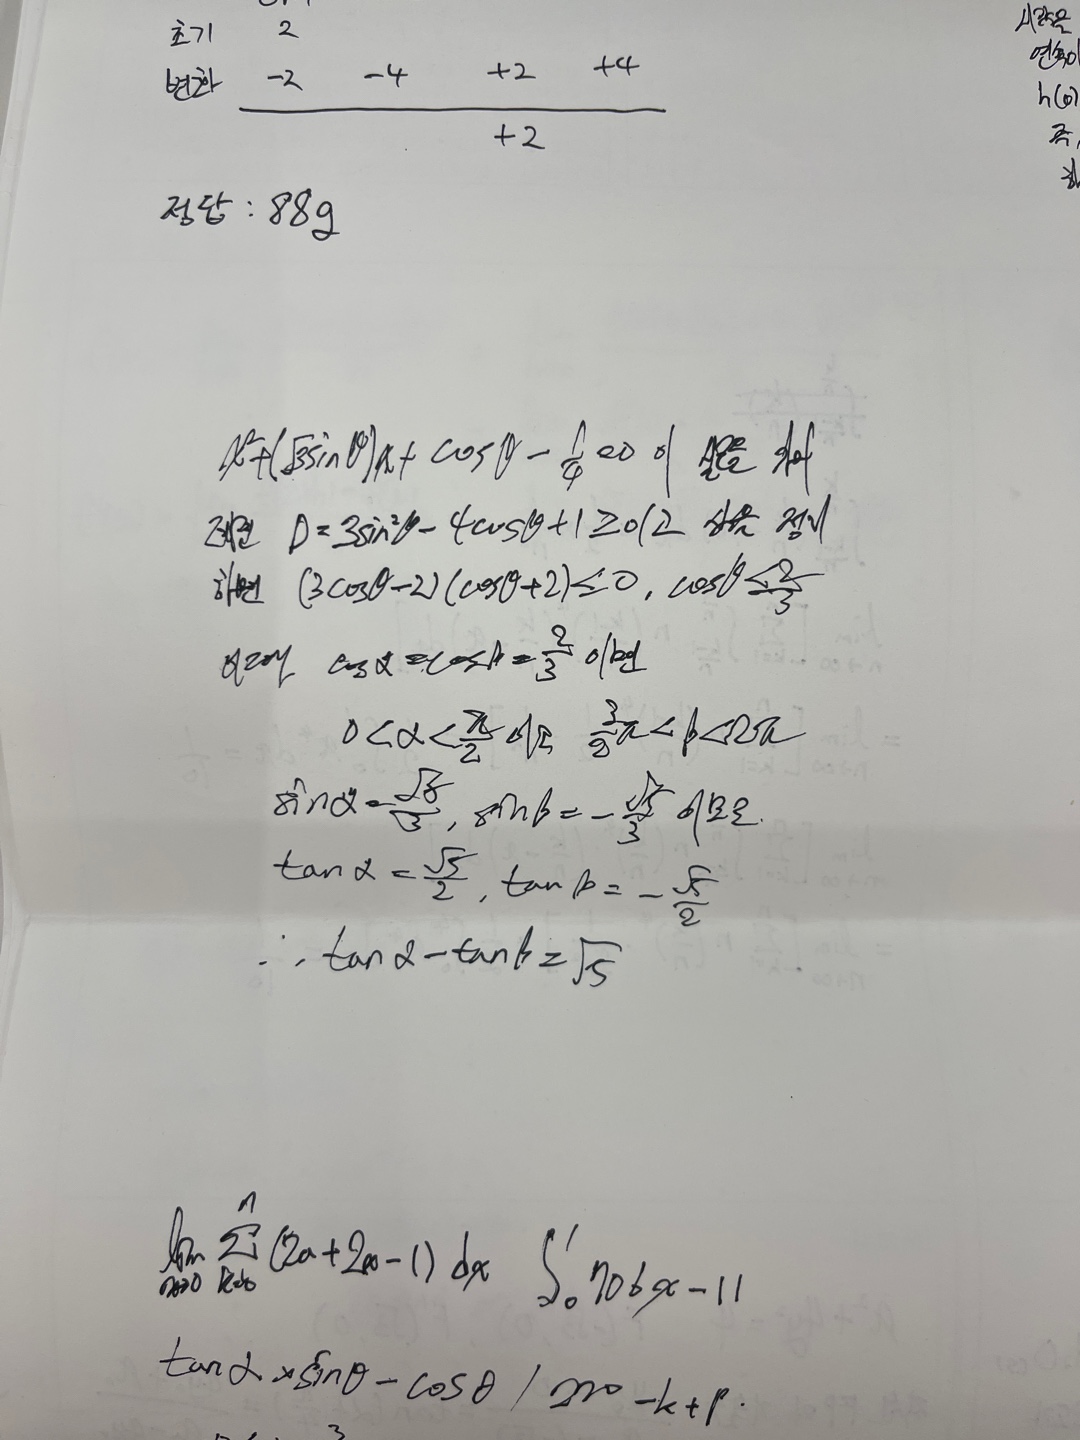 초기 2
변화 -2 -4 +2 +4
+2
정답 : 88g
x²+(√3sinθ)x+cosθ-1/4=0 이 실근을 가
지면 D=3sin²θ-4cosθ+1≥0이고 식을 정리
하면 (3cosθ-2)(cosθ+2)≤0, cosθ≤2/3
cosα=cosβ=2/3 이면
0<α<π/2 이고 3/2π<β<2π
sinα=√5/3, sinβ=-√5/3 이므로.
tanα=√5/2, tanβ=-√5/2
∴ tanα-tanβ=√5
lim Σ (2a+2x-1) dx ∫
tanα × sinθ - cosθ / -k+p.
시작은
h(0)
즉,